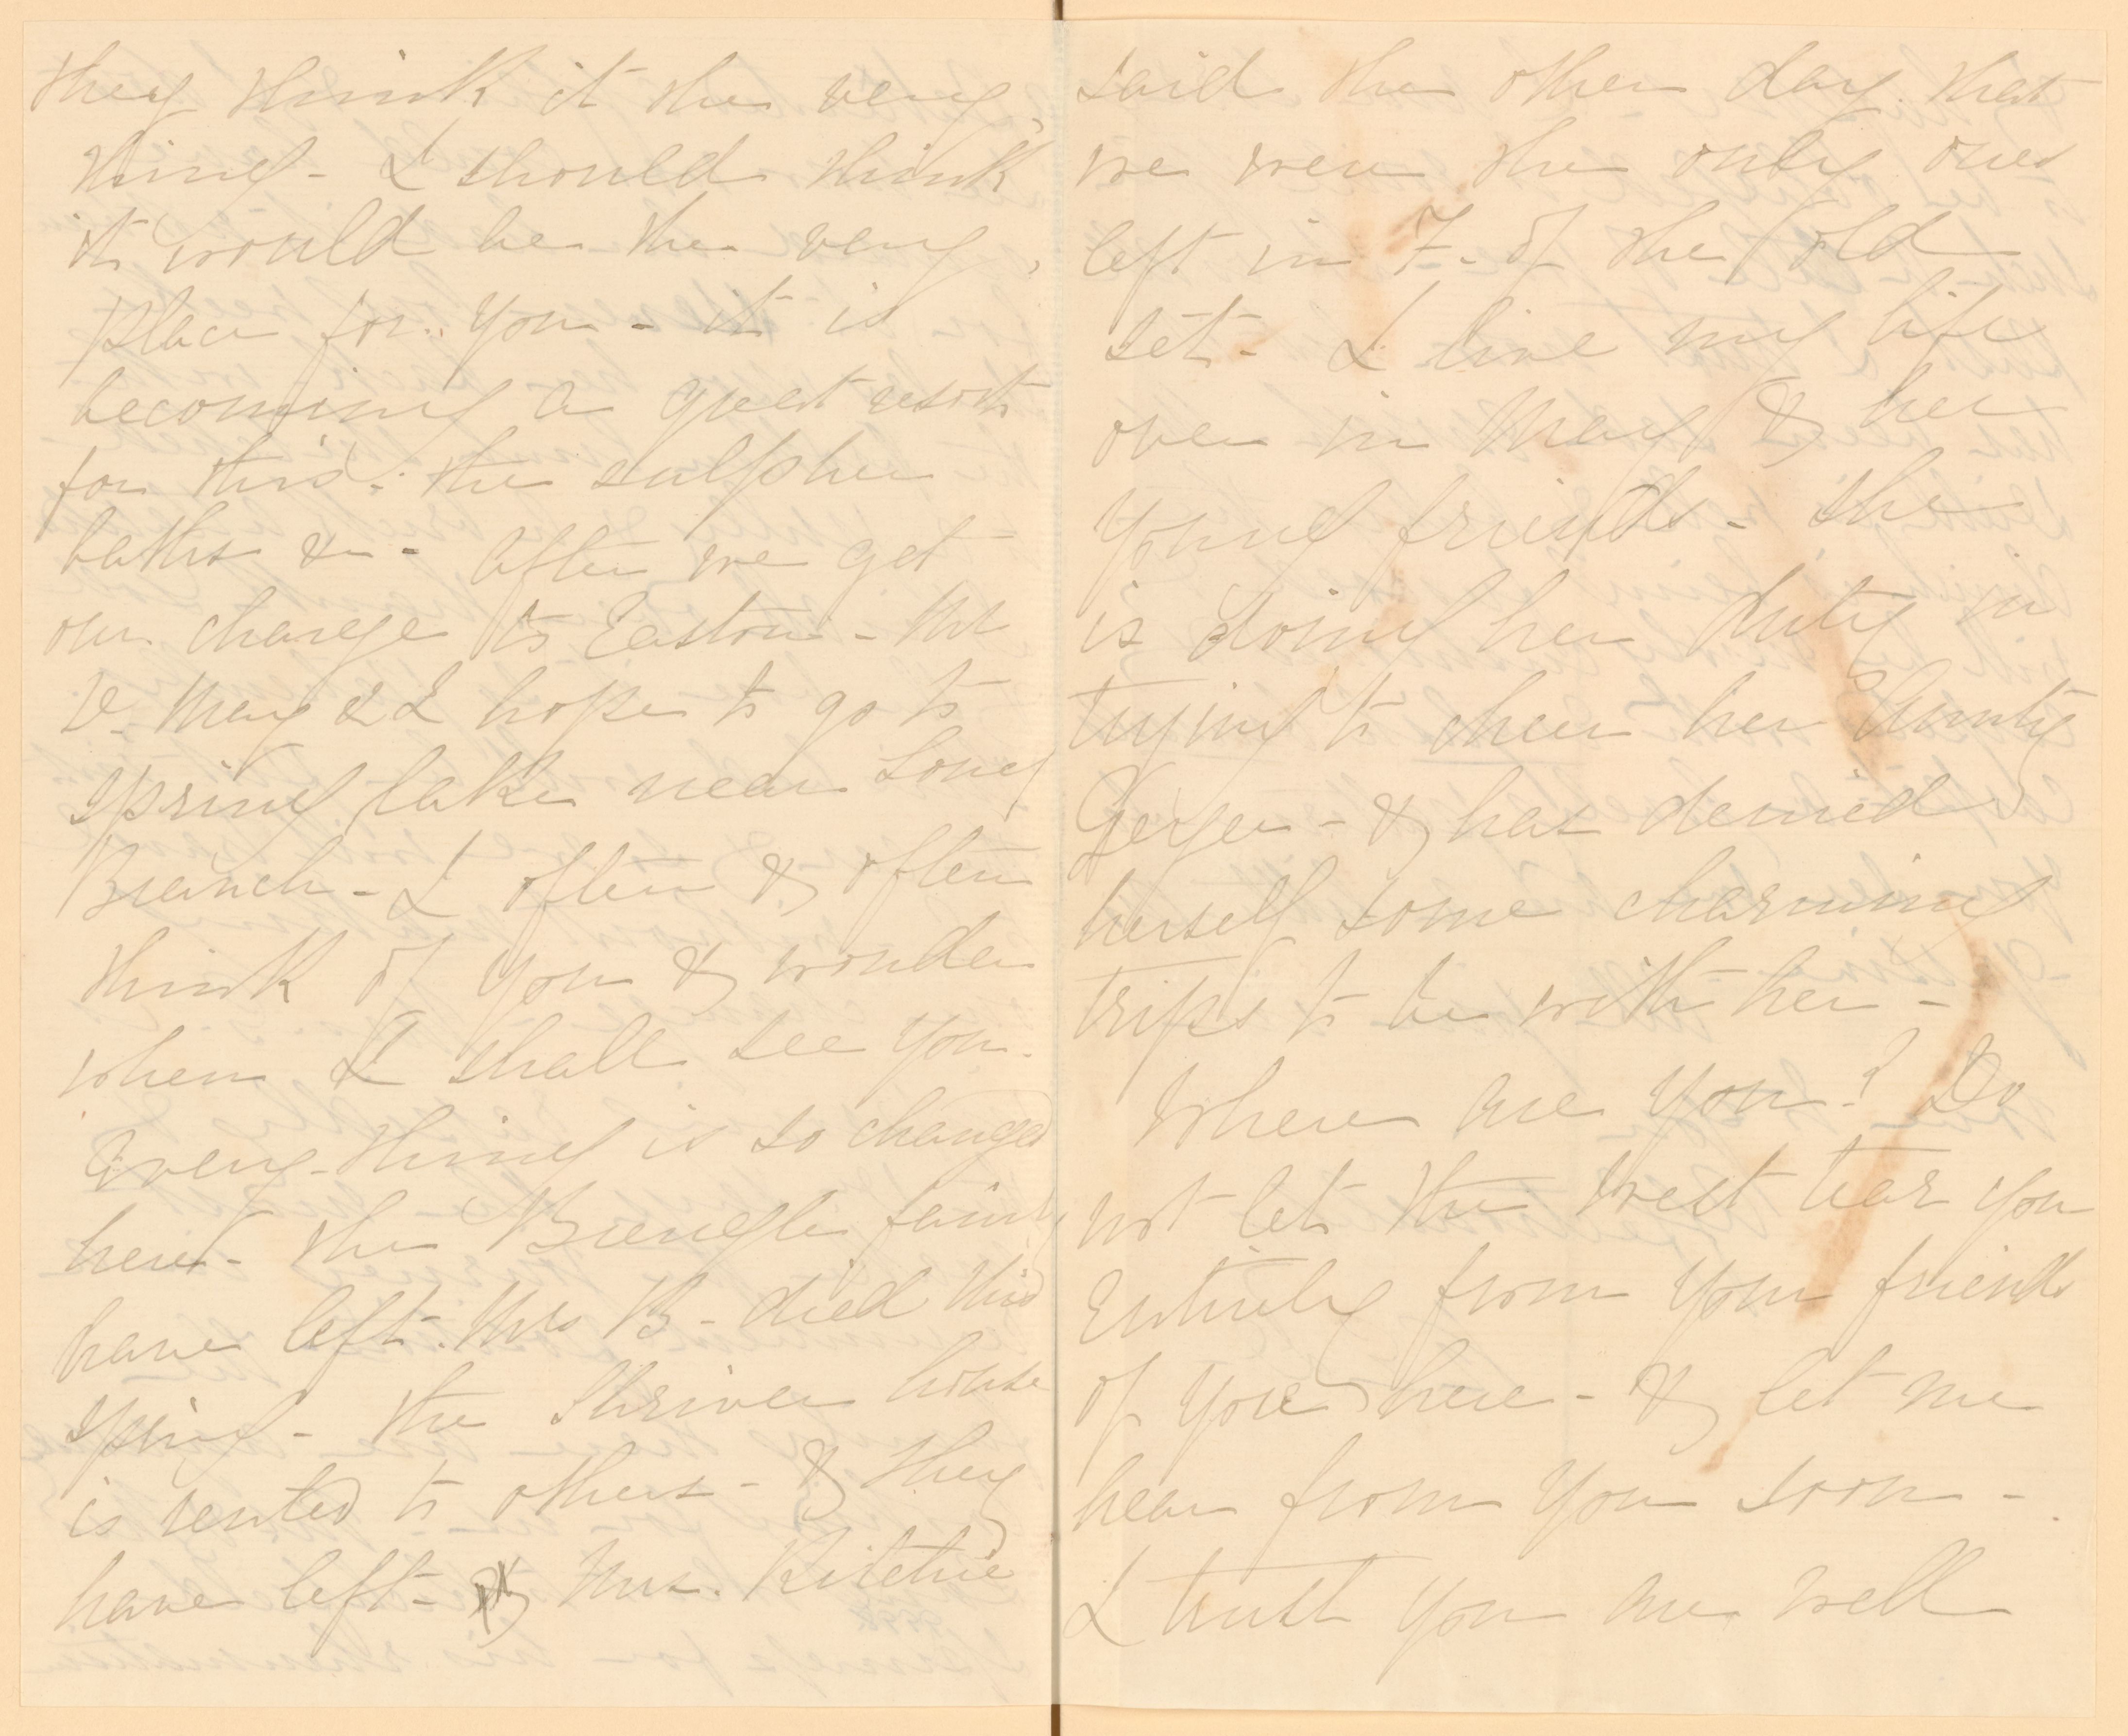 they think it the very
thing - I should think
it would be the very
place for you - it is
becoming a great resort
for this. the sulpher
baths &c - After we get
our change to Easton - Mr
V. Mary & I hope to go to
Spring lake near Long
Branch - I often & often
think of you & wonder
when I shall see you.
Every-thing is so changed
here - the Brengle family
have left. Mrs B - died this
spring - the Shriver house
is rented to others - & they
have left - & Mrs. Ritchie
said the other day that
we were the only ones
left in F. of the old
set - I live my life
over in Mary & her
young friends - she
is doing her duty in
trying to cheer her Aunty
Geyer - & has denied
herself some charming
trips to be with her -
Where are you? Do
not let the West tear you
entirely from your friends
of yore here - & let me
hear from you soon -
I trust you are well